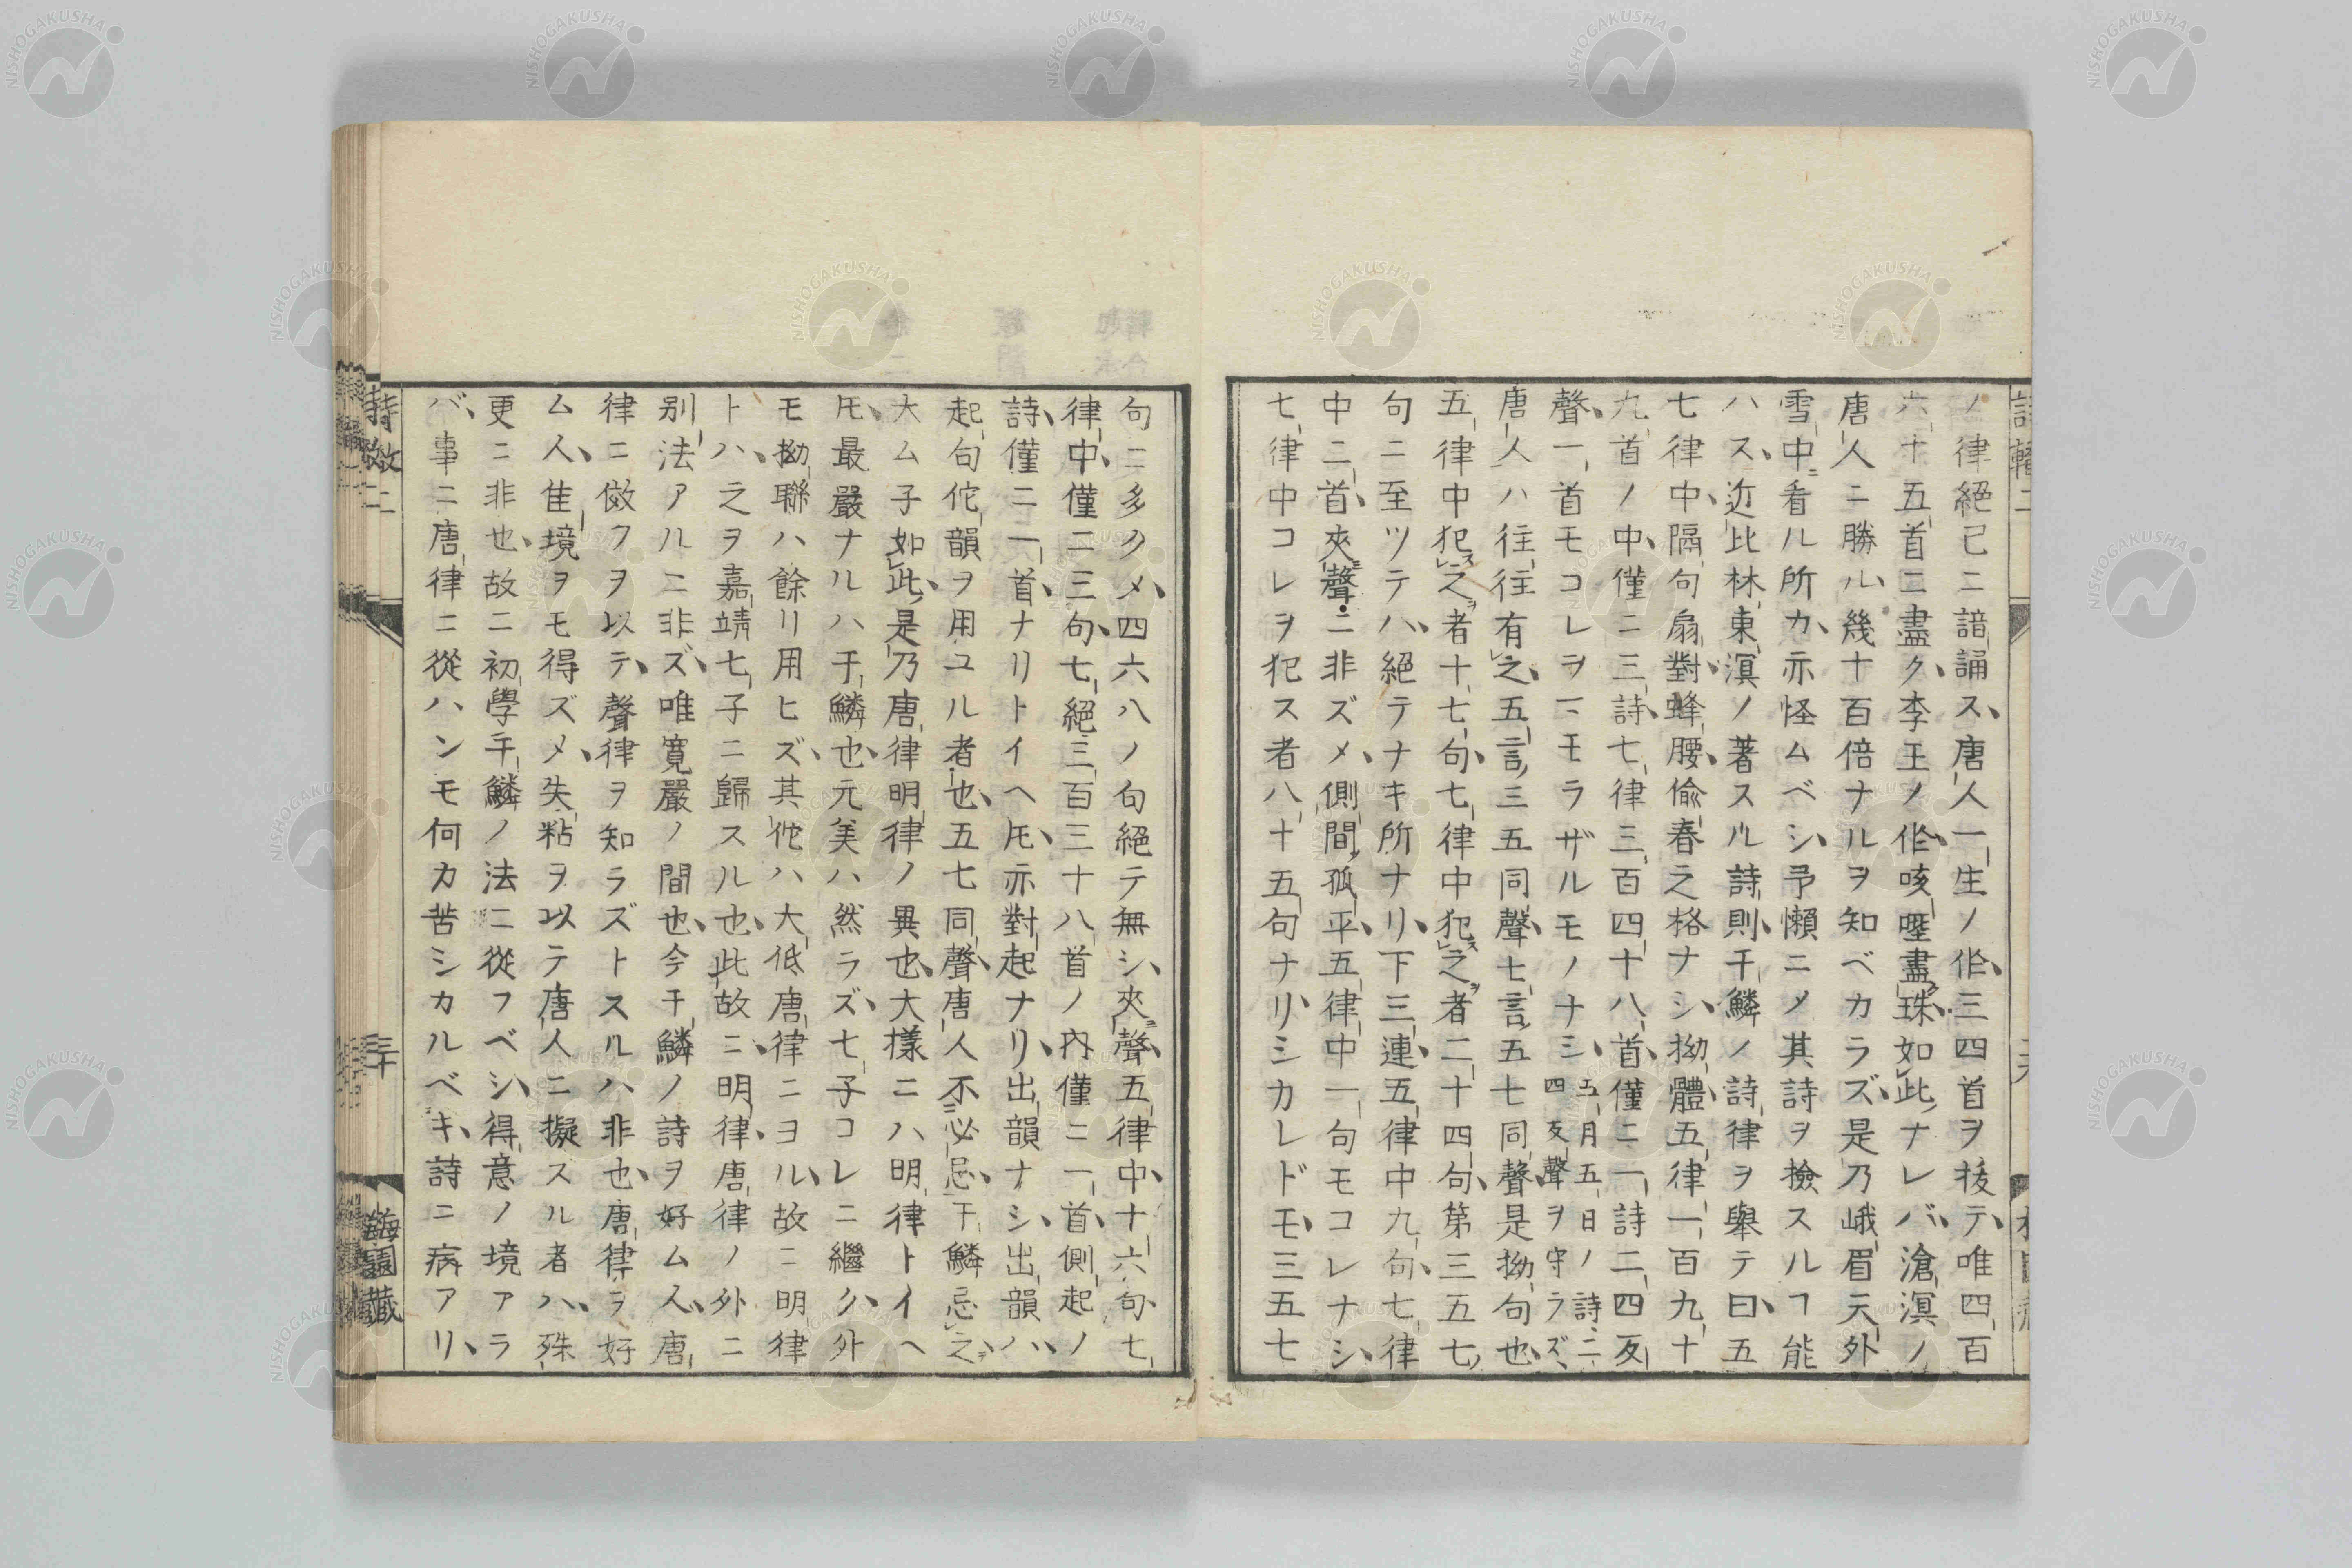 ノ律絕已ニ諳誦ス、唐人一生ノ作、三四首ヲ拔テ、唯四百
六十五首ニ盡ク、李王ノ作、咳唾盡珠、如此ナレバ、滄溟ノ
唐人ニ勝ル、幾十百倍ナルヲ知ベカラズ、是乃峨眉天外
雪中看ル所カ、亦怪ムベシ、予懶ニメ其詩ヲ撿スルヿ能
ハス、近比林東溟ノ著スル詩則、于鱗ノ詩律ヲ舉テ曰、五
七律中、隔句扇對、蜂腰、偸春之格ナシ、拗體、五律一百九十
九首ノ中、僅ニ三詩、七律三百四十八首、僅ニ一詩二四仄
聲、一首モコレヲ一モラザルモノナシ、五月五日ノ詩、二四仄聲ヲ守ラズ、
唐人ハ往往有之、五言、三五同聲、七言、五七同聲、是拗句也、
五律中犯之者十七句、七律中犯之者二十四句、第三五七
句ニ至ツテハ、絕テナキ所ナリ、下三連、五律中九句、七律
中二首、夾聲ニ非ズメ、側間孤平、五律中一句モコレナシ、
七律中コレヲ犯ス者八十五句ナリ、シカレドモ、三五七
句ニ多クメ、四六八ノ句絕テ無シ、夾聲、五律中、十六句、七
律中、僅ニ三句、七絕三百三十八首ノ內、僅ニ一首、側起ノ
詩、僅ニ一首ナリトイヘ𪜈、亦對起ナリ、出韻ナシ、出韻ハ、
起句佗韻ヲ用ユル者也、五七同聲、唐人不必忌、于鱗忌之、
大ム子如此、是乃唐律明律ノ異也、大樣ニハ明律トイヘ
𪜈、最嚴ナルハ于鱗也、元美ハ然ラズ、七子コレニ繼ク、外
モ拗聯ハ餘リ用ヒズ、其佗ハ大低唐律ニヨル、故ニ明律
トハ、之ヲ嘉靖七子ニ歸スル也、此故ニ、明律、唐律ノ外ニ
別法アルニ非ズ、唯寬嚴ノ間也、今于鱗ノ詩ヲ好ム人、唐
律ニ傚フヲ以テ、聲律ヲ知ラズトスルハ非也、唐律ヲ好
ム人、佳境ヲモ得ズメ、失粘ヲ以テ唐人ニ擬スル者ハ、殊
更ニ非也、故ニ初學于鱗ノ法ニ從フベシ、得意ノ境アラ
バ、事ニ唐律ニ從ハンモ何カ苦シカルベキ、詩ニ病アリ、
三十